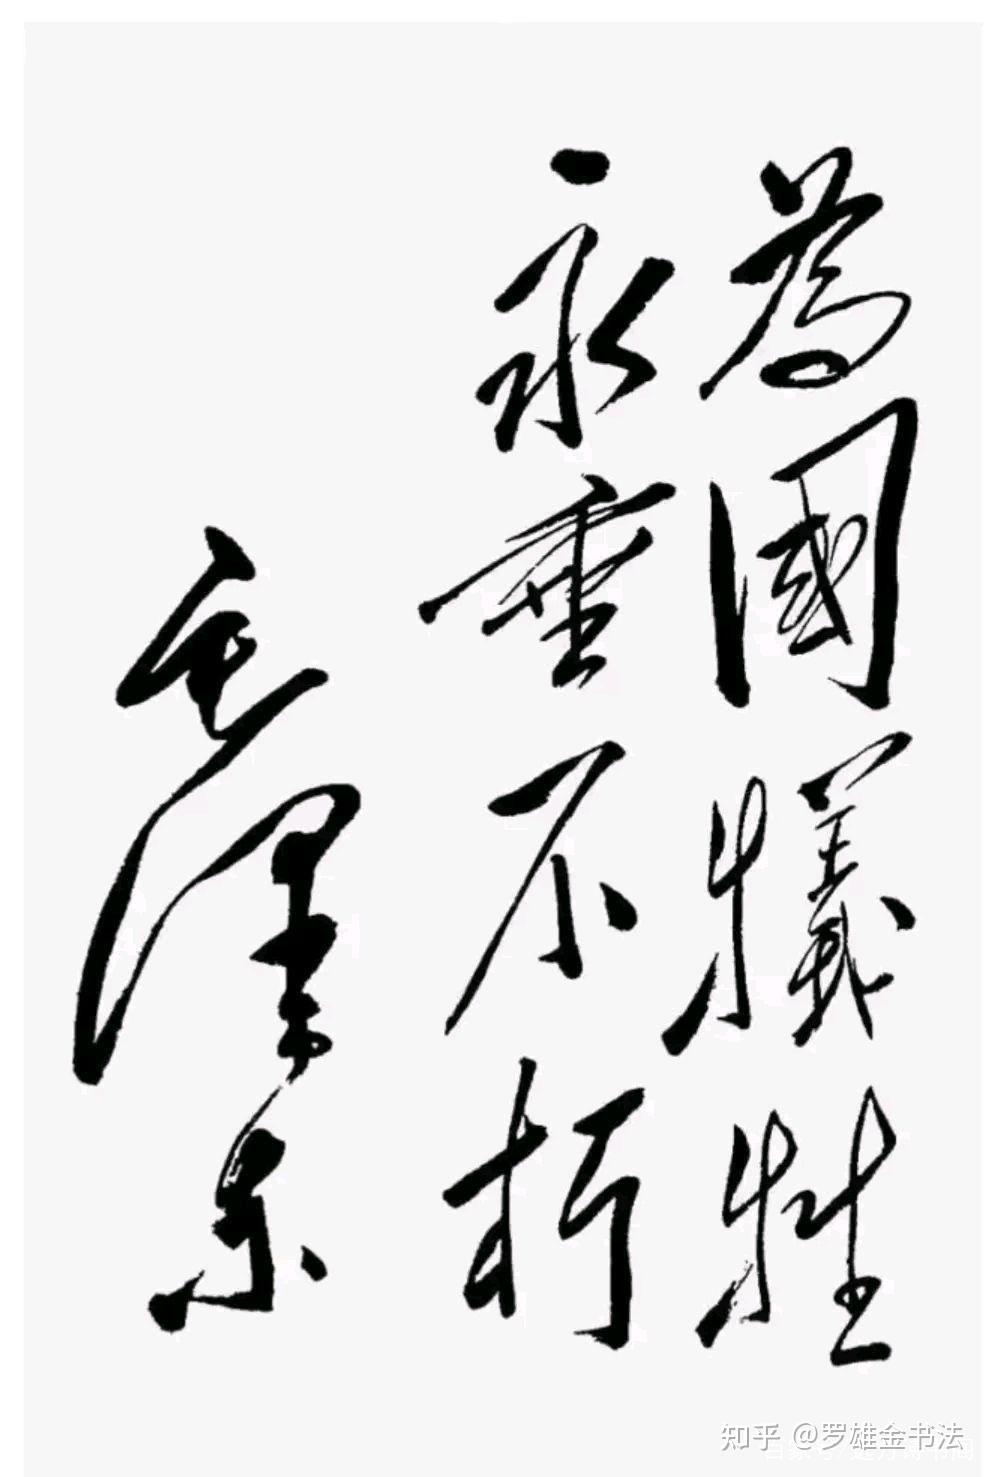 為國犧牲
永垂不朽
毛澤东
知乎 @罗雄金书法